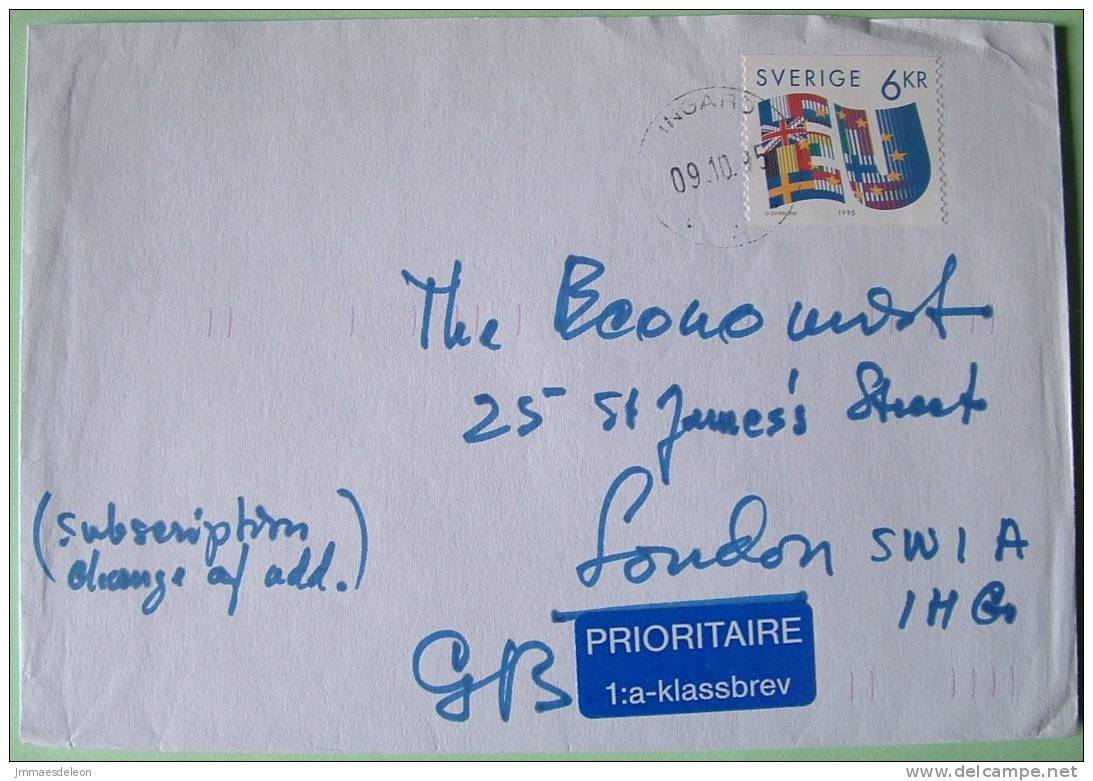 SVERIGE 6KR
INGARÖ
09.10.95
1995
The Economist
25 St James's Street
London SW1A
1HG
(subscription
change of add.)
GB
PRIORITAIRE
1:a-klassbrev
jmmaesdeleon
delcampe.net